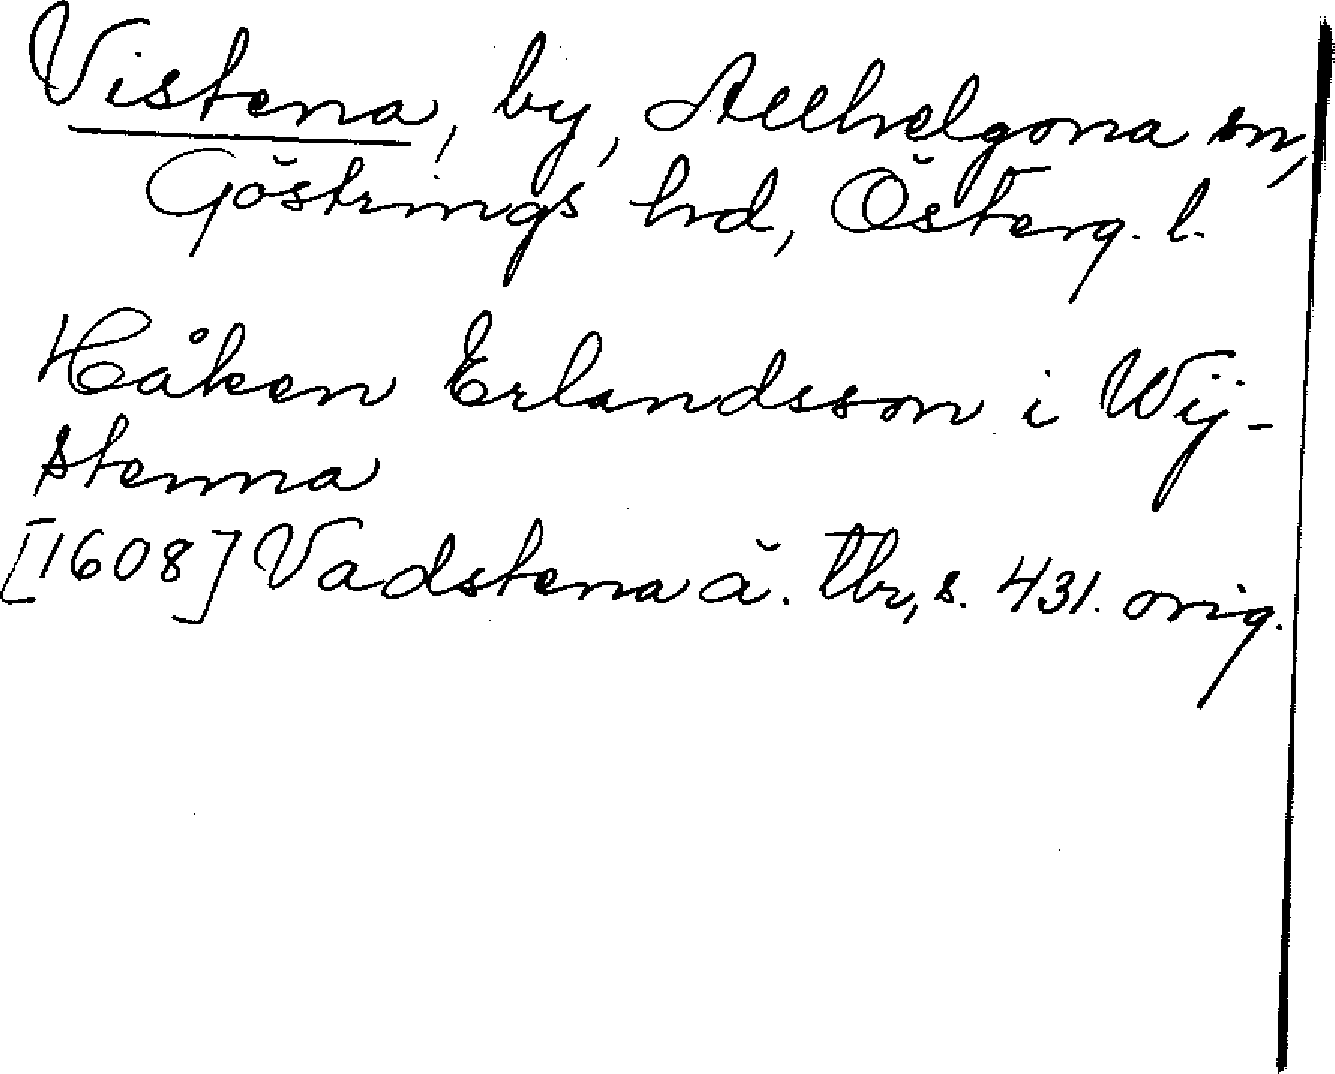 Vistena, by, Allhelgona sn,
Göstrings hd, Österg. l.
Håken Erlandsson i Wij-
stenna
[1608] Vadstena ä. tbr, s. 431. orig.